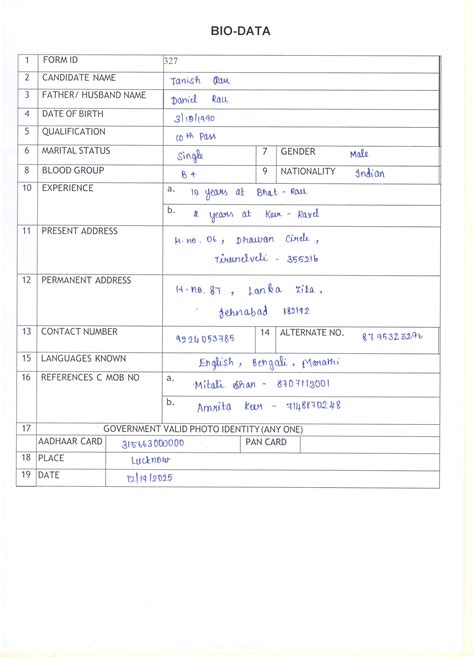 BIO-DATA
1 FORM ID 327
2 CANDIDATE NAME Tanish Rau
3 FATHER/ HUSBAND NAME Daniel Rau
4 DATE OF BIRTH 3/10/1990
5 QUALIFICATION 10th Pass
6 MARITAL STATUS Single 7 GENDER Male
8 BLOOD GROUP B+ 9 NATIONALITY Indian
10 EXPERIENCE a. 10 years at Bhat - Rau
b. 2 years at Keer - Ravel
11 PRESENT ADDRESS H. no. 06, Dhawan Circle,
Tirunelveli - 355216
12 PERMANENT ADDRESS H-no. 87, Lanka Zila,
Jehnabad 182192
13 CONTACT NUMBER 9224053785 14 ALTERNATE NO. 8795323296
15 LANGUAGES KNOWN English, Bengali, Marathi
16 REFERENCES C MOB NO a. Mitali - 8707113001
b. Amrita Keer - 7148870248
17 GOVERNMENT VALID PHOTO IDENTITY(ANY ONE)
AADHAAR CARD 315663000000 PAN CARD
18 PLACE Lucknow
19 DATE 12/19/2025